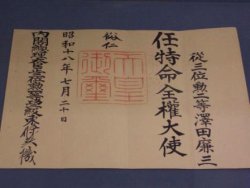 從三位勲一等澤田廉三
任特命全權大使
裕仁
天皇御璽
昭和十八年七月二十日
内閣總理大臣 東條英機